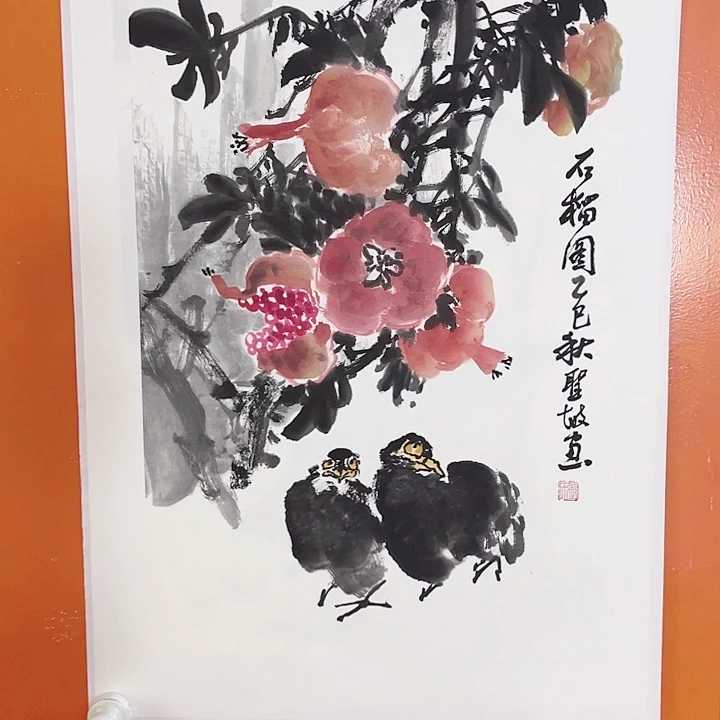 石榴图乙巳秋聖坡画